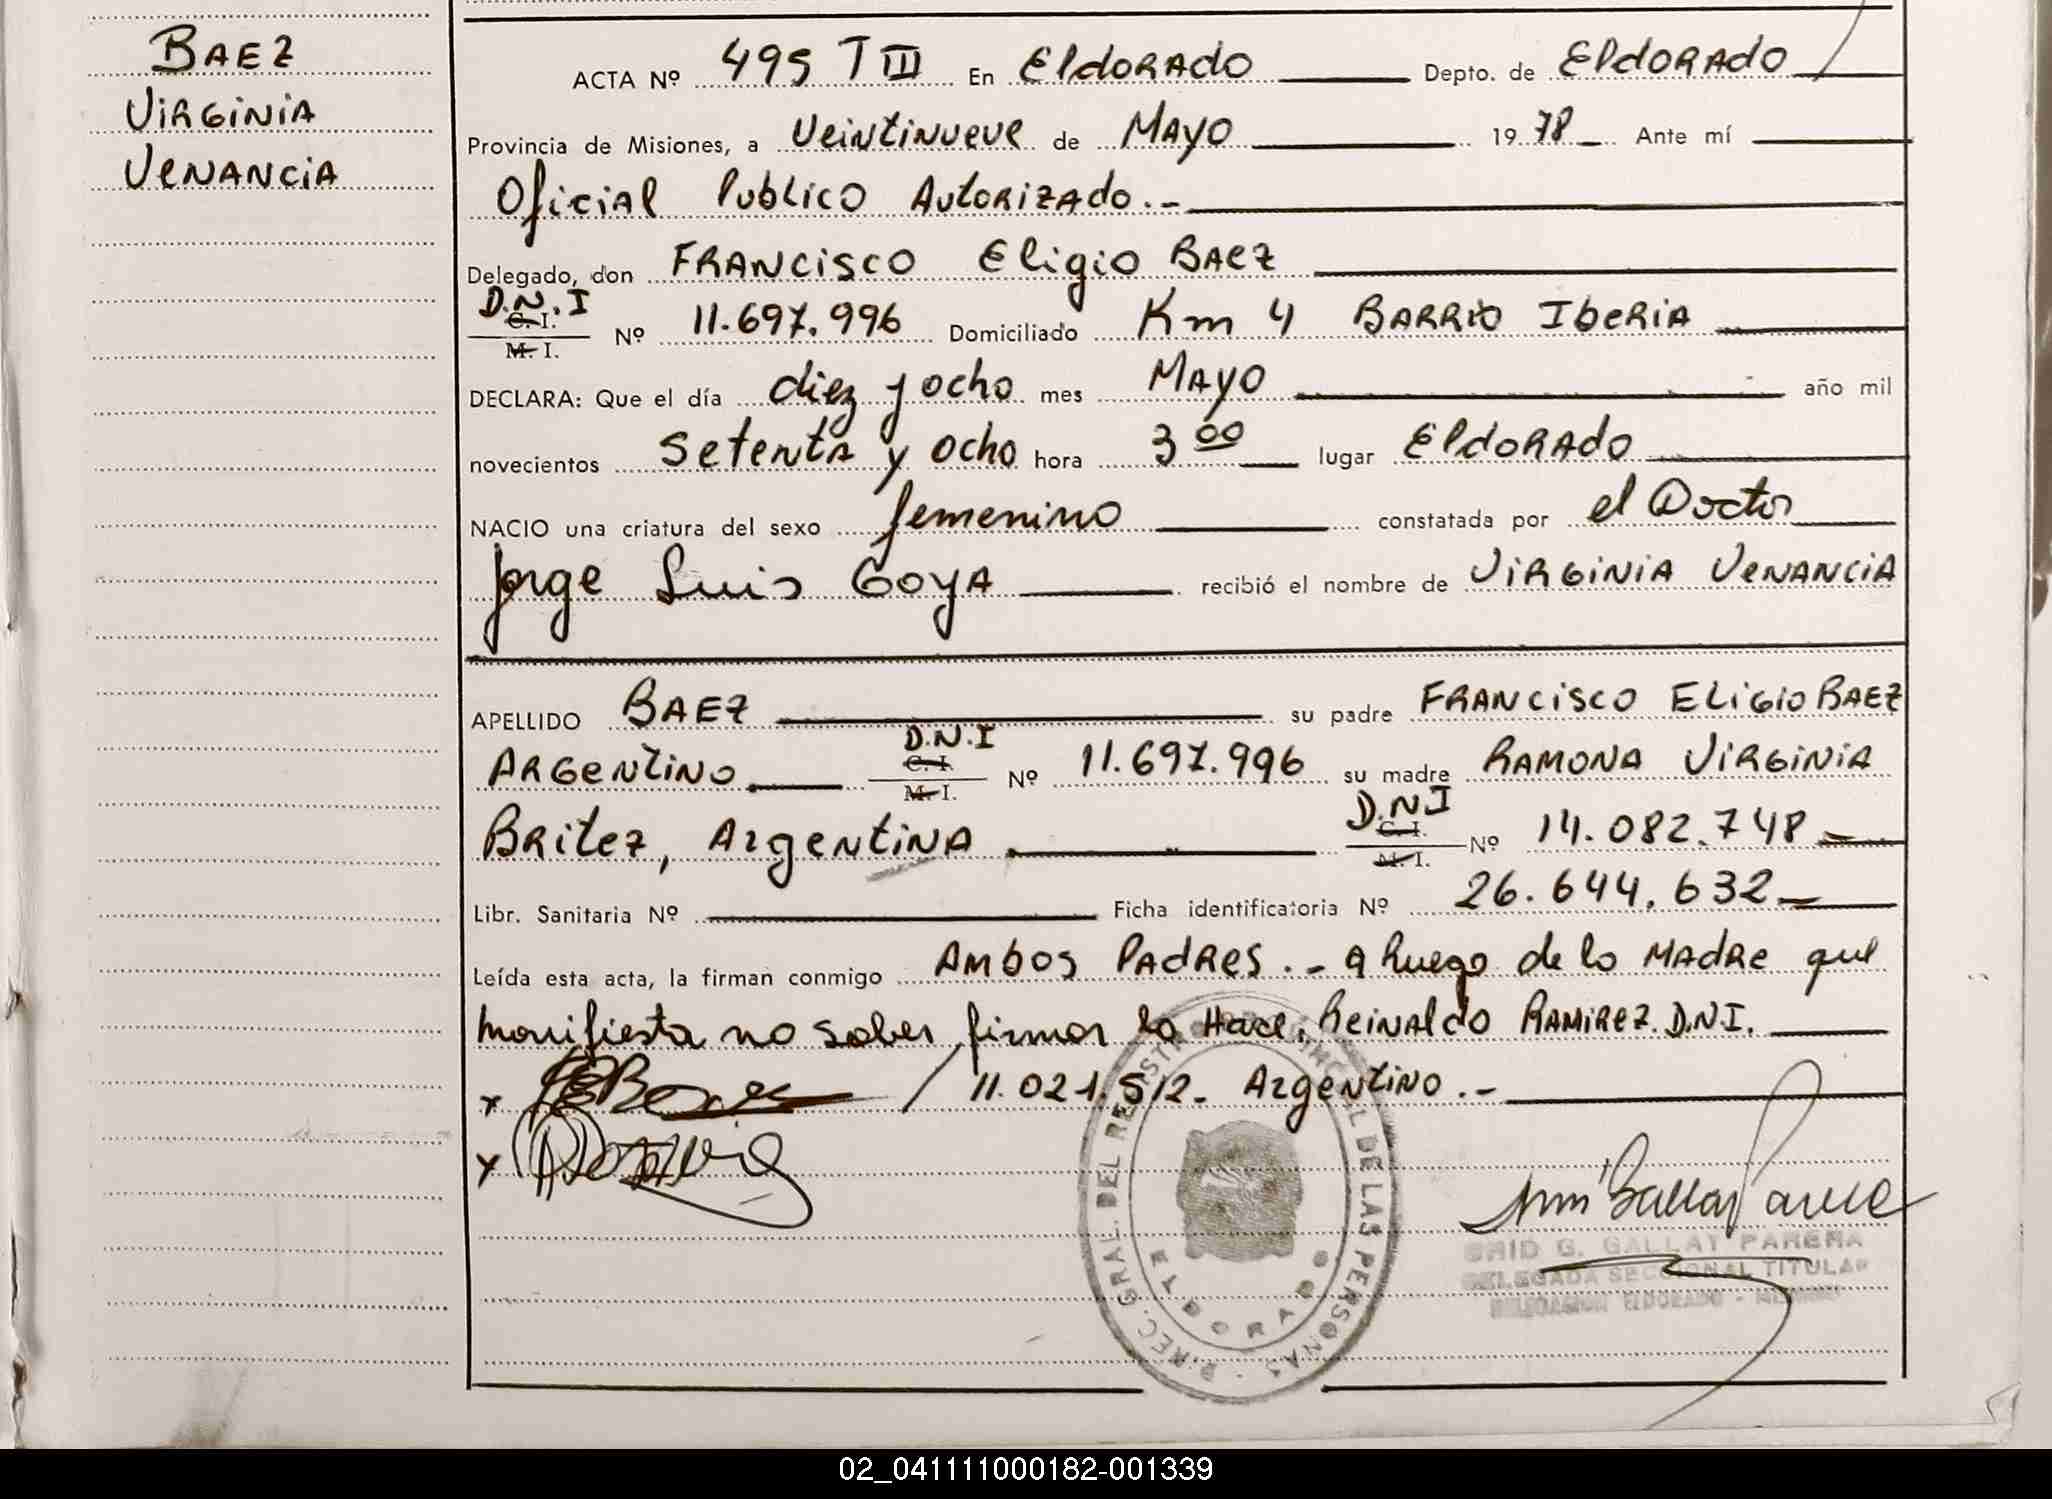 BAEZ
VIRGINIA
VENANCIA
ACTA Nº 495 T III En Eldorado Depto. de Eldorado
Provincia de Misiones, a Veintinueve de Mayo 1978 Ante mí
Oficial Publico Autorizado.-
Delegado, don Francisco Eligio Baez
D.N.I
C. I.
M. I. Nº 11.697.996 Domiciliado Km 4 Barrio Iberia
DECLARA: Que el día diez y ocho mes Mayo año mil
novecientos setenta y ocho hora 3 00 lugar Eldorado
NACIO una criatura del sexo femenino constatada por el Doctor
Jorge Luis Goya recibió el nombre de Virginia Venancia
APELLIDO BAEZ su padre Francisco Eligio Baez
D.N.I
C. I.
Argentino M. I. Nº 11.697.996 su madre Ramona Virginia
D.N.I
C. I.
Britez, Argentina M. I. Nº 14.082.748
Libr. Sanitaria Nº Ficha identificatoria Nº 26.644.632
Leída esta acta, la firman conmigo Ambos Padres.- A Ruego de la Madre que
manifiesta no saber firmar lo Hace, Reinaldo Ramirez. D.N.I.
x / 11.021.512- Argentino.-
x
DIREC. GRAL. DEL REGISTRO PROVINCIAL DE LAS PERSONAS
ELDORADO
G. GALLAY PARERA
DELEGADA SECCIONAL TITULAR
DELEGACION ELDORADO - MISIONES
02_041111000182-001339